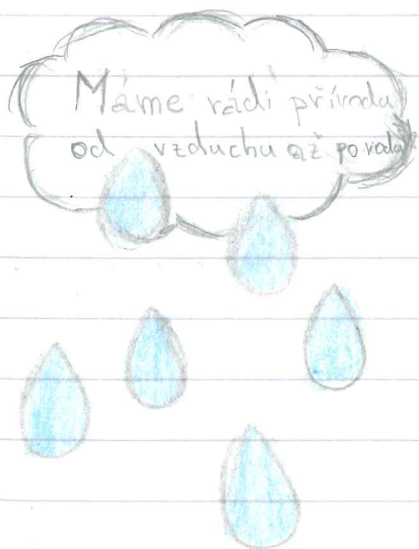 Máme rádi přírodu
od vzduchu až po vodu